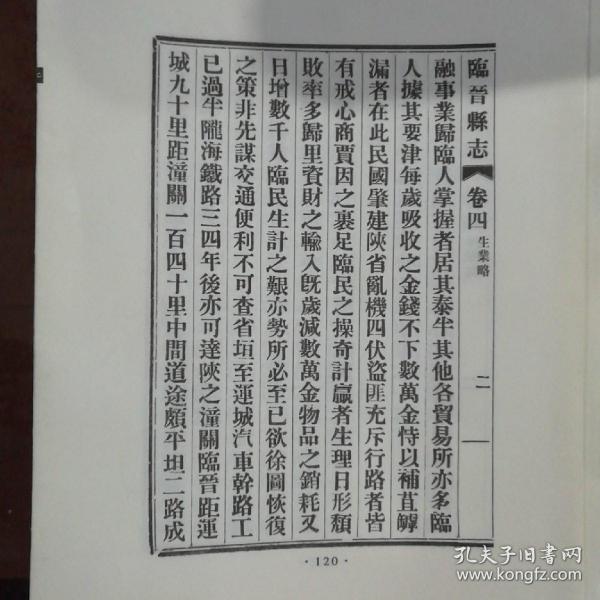 臨晉縣志 卷四 生業略 二
融事業歸臨人掌握者居其泰半其他各貿易所亦多臨
人據其要津每歲吸收之金錢不下數萬金恃以補苴罅
漏者在此民國肇建陝省亂機四伏盜匪充斥行路者皆
有戒心商賈因之裹足臨民之操奇計贏者生理日形頹
敗率多歸里資財之輸入既歲減數萬金物品之銷耗又
日增數千人臨民生計之艱亦勢所必至已欲徐圖恢復
之策非先謀交通便利不可查省垣至運城汽車幹路工
已過半隴海鐵路三四年後亦可達陝之潼關臨晉距運
城九十里距潼關一百四十里中間道途頗平坦二路成
·120·
孔夫子旧书网
www.kongfz.com